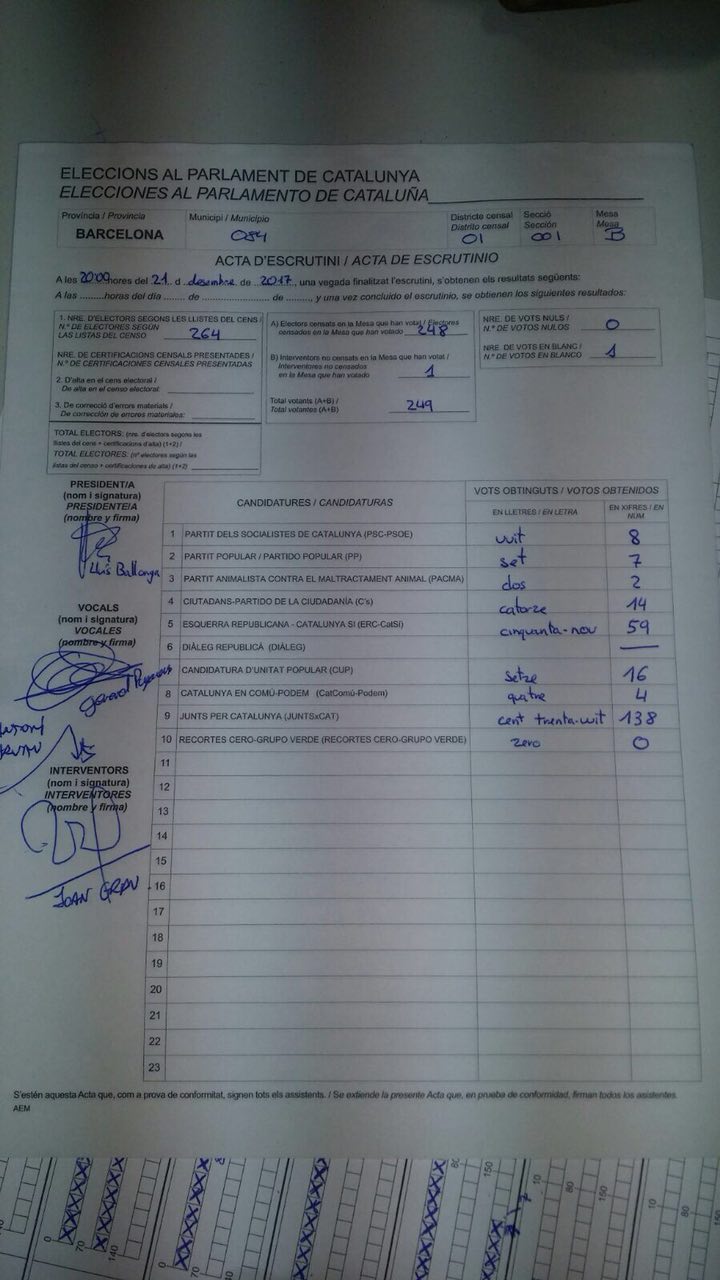 ELECCIONS AL PARLAMENT DE CATALUNYA
ELECCIONES AL PARLAMENTO DE CATALUÑA
Província / Provincia
BARCELONA
Municipi / Municipio
084
Districte censal
Distrito censal
01
Secció
Sección
001
Mesa
Mesa
B
ACTA D'ESCRUTINI / ACTA DE ESCRUTINIO
A les 20:00 hores del 21 d desembre de 2017, una vegada finalitzat l'escrutini, s'obtenen els resultats següents:
A las ......... horas del día ....... de ................ de ........, y una vez concluido el escrutinio, se obtienen los siguientes resultados:
1. NRE. D'ELECTORS SEGONS LES LLISTES DEL CENS /
N.º DE ELECTORES SEGÚN
LAS LISTAS DEL CENSO 264
NRE. DE CERTIFICACIONS CENSALS PRESENTADES /
N.º DE CERTIFICACIONES CENSALES PRESENTADAS
2. D'alta en el cens electoral /
De alta en el censo electoral:
3. De correcció d'errors materials /
De corrección de errores materiales:
TOTAL ELECTORS: (nre. d'electors segons les
llistes del cens + certificacions d'alta) (1+2) /
TOTAL ELECTORES: (nº electores según las
listas del censo + certificaciones de alta) (1+2)
A) Electors censats en la Mesa que han votat / Electores
censados en la Mesa que han votado 248
B) Interventors no censats en la Mesa que han votat /
Interventores no censados
en la Mesa que han votado 1
Total votants (A+B) /
Total votantes (A+B) 249
NRE. DE VOTS NULS /
N.º DE VOTOS NULOS 0
NRE. DE VOTS EN BLANC /
N.º DE VOTOS EN BLANCO 1
PRESIDENT/A
(nom i signatura)
PRESIDENTE/A
(nombre y firma)
Lluís Ballonga
VOCALS
(nom i signatura)
VOCALES
(nombre y firma)
Gerard
INTERVENTORS
(nom i signatura)
INTERVENTORES
(nombre y firma)
JOAN GRAU
CANDIDATURES / CANDIDATURAS
VOTS OBTINGUTS / VOTOS OBTENIDOS
EN LLETRES / EN LETRA
EN XIFRES / EN NUM
1 PARTIT DELS SOCIALISTES DE CATALUNYA (PSC-PSOE) vuit 8
2 PARTIT POPULAR / PARTIDO POPULAR (PP) set 7
3 PARTIT ANIMALISTA CONTRA EL MALTRACTAMENT ANIMAL (PACMA) dos 2
4 CIUTADANS-PARTIDO DE LA CIUDADANÍA (C's) catorze 14
5 ESQUERRA REPUBLICANA - CATALUNYA SÍ (ERC-CatSí) cinquanta-nou 59
6 DIÀLEG REPUBLICÀ (DIÀLEG) —
CANDIDATURA D'UNITAT POPULAR (CUP) setze 16
8 CATALUNYA EN COMÚ-PODEM (CatComú-Podem) quatre 4
9 JUNTS PER CATALUNYA (JUNTSxCAT) cent trenta-vuit 138
10 RECORTES CERO-GRUPO VERDE (RECORTES CERO-GRUPO VERDE) zero 0
11
12
13
14
15
16
17
18
19
20
21
22
23
S'estén aquesta Acta que, com a prova de conformitat, signen tots els assistents. / Se extiende la presente Acta que, en prueba de conformidad, firman todos los asistentes.
AEM